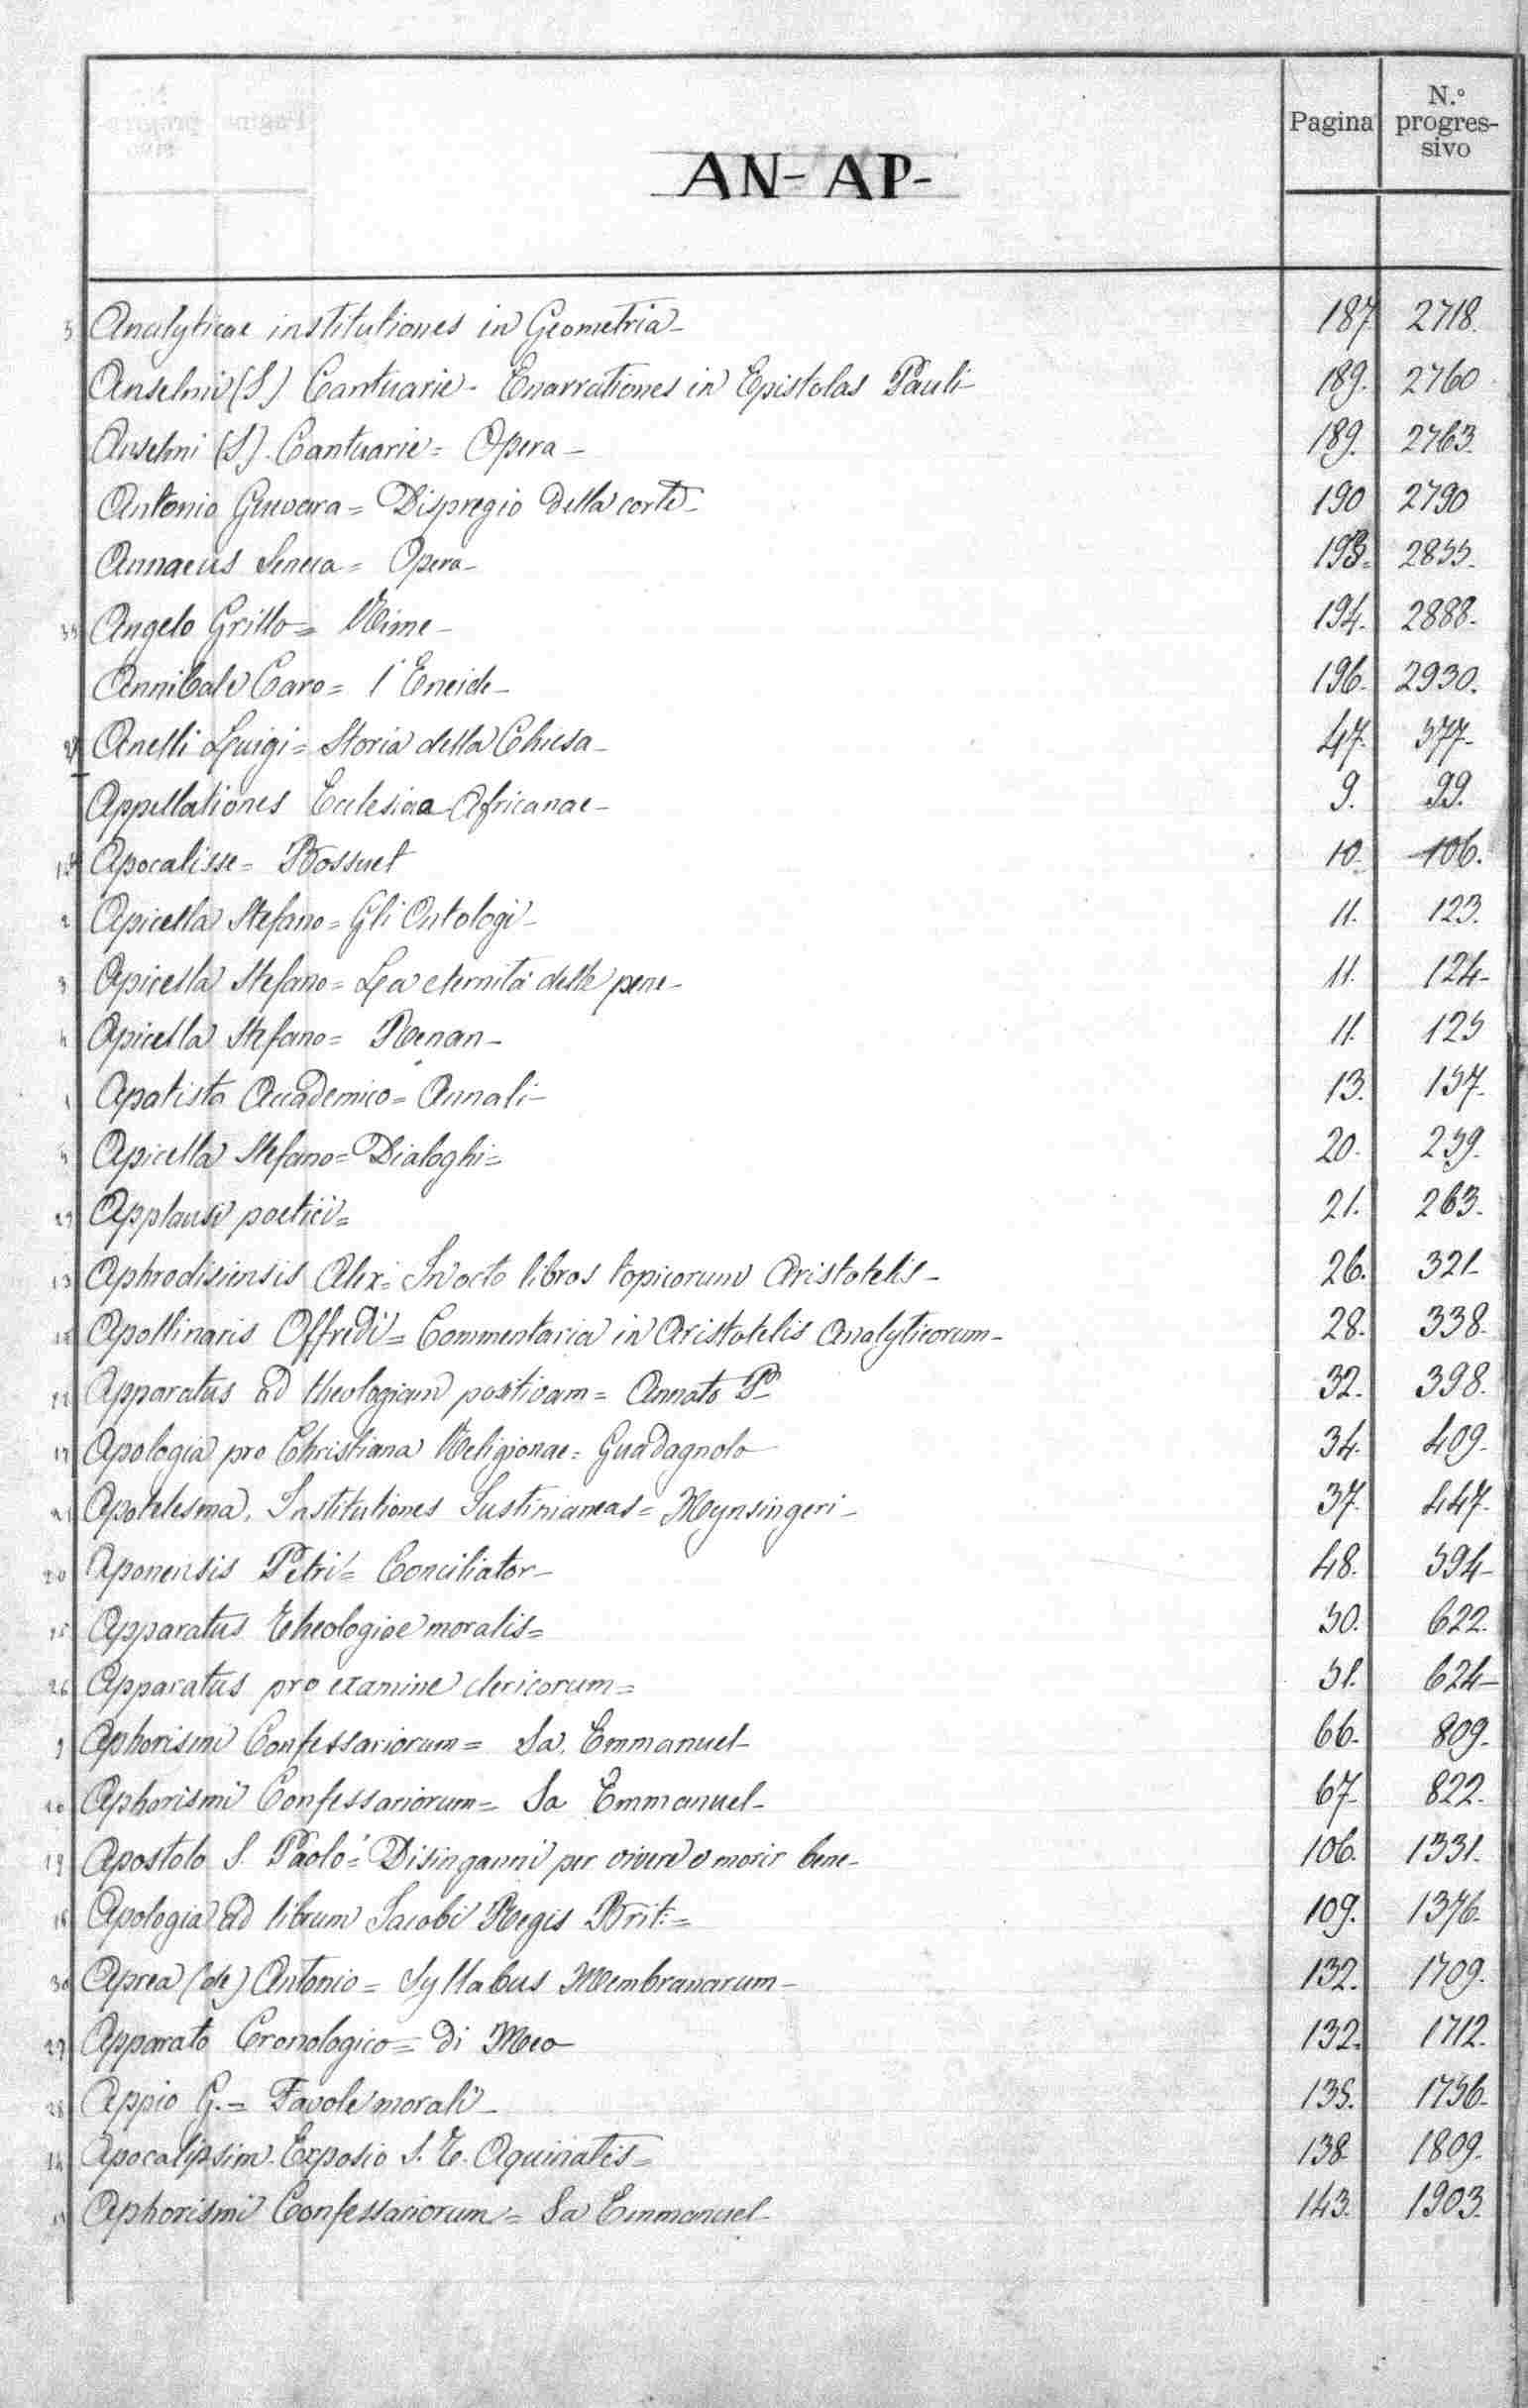 Pagina N.° progres-sivo
AN- AP-
5 Analyticae institutiones in Geometria- 187 2718.
Anselmi (S) Cantuarie- Enarrationes in Epistolas Pauli- 189. 2760
Anselmi (S). Cantuarie= Opera- 189. 2763.
Antonio Guevara= Dispregio della corte- 190 2790
Annaeus Seneca= Opera- 193. 2855.
Angelo Grillo= Rime- 194. 2888-
Annibale Caro= l'Eneide- 196. 2930.
Anelli Luigi= Storia della Chiesa- 47.
Appellationes Ecclesiae Africanae- 9. 99.
Apocalisse= Bossuet 10. 106.
2 Apicella Stefano= Gli Ontologi- 11. 123.
3 Apicella Stefano= La eternità delle pene- 11. 124-
4 Apicella Stefano= Renan- 11. 125
1 Apatista Accademico= Annali- 13. 157.
5 Apicella Stefano= Dialoghi= 20. 259.
Applausi poetici= 21. 263.
13 Aphrodisiensis Alex: In octo libros topicorum Aristotelis- 26. 321-
Apollinaris Offredi= Commentaria in Aristotelis Analyticorum- 28. 338.
22 Apparatus ad theologiam positivam= Annato P. 32. 398.
17 Apologia pro Christiana Religionae= Guadagnolo 34. 409-
21 Apotelesma, Institutiones Justinianeas= Mynsingeri- 37. 447.
20 Aponensis Petri= Conciliator- 48. 594-
25 Apparatus Theologiae moralis= 50. 622.
26 Apparatus pro examine clericorum= 51. 624-
9 Aphorismi Confessariorum= Sa. Emmanuel- 66. 809-
10 Aphorismi Confessariorum= Sa Emmanuel- 67- 822.
19 Apostolo S. Paolo= Disinganni per vivere e morir bene- 106. 1331.
16 Apologia ad librum Jacobi Regis Brit:= 109. 1376.
30 Aprea (de) Antonio= Syllabus Membranarum- 132. 1709.
27 Apparato Cronologico= di Meo 132. 1712.
28 Appio G.= Favole morali- 135. 1756-
14 Apocalipsim. Exposio S. T. Aquinatis= 138 1809.
Aphorismi Confessariorum= Sa Emmanuel- 143. 1903.